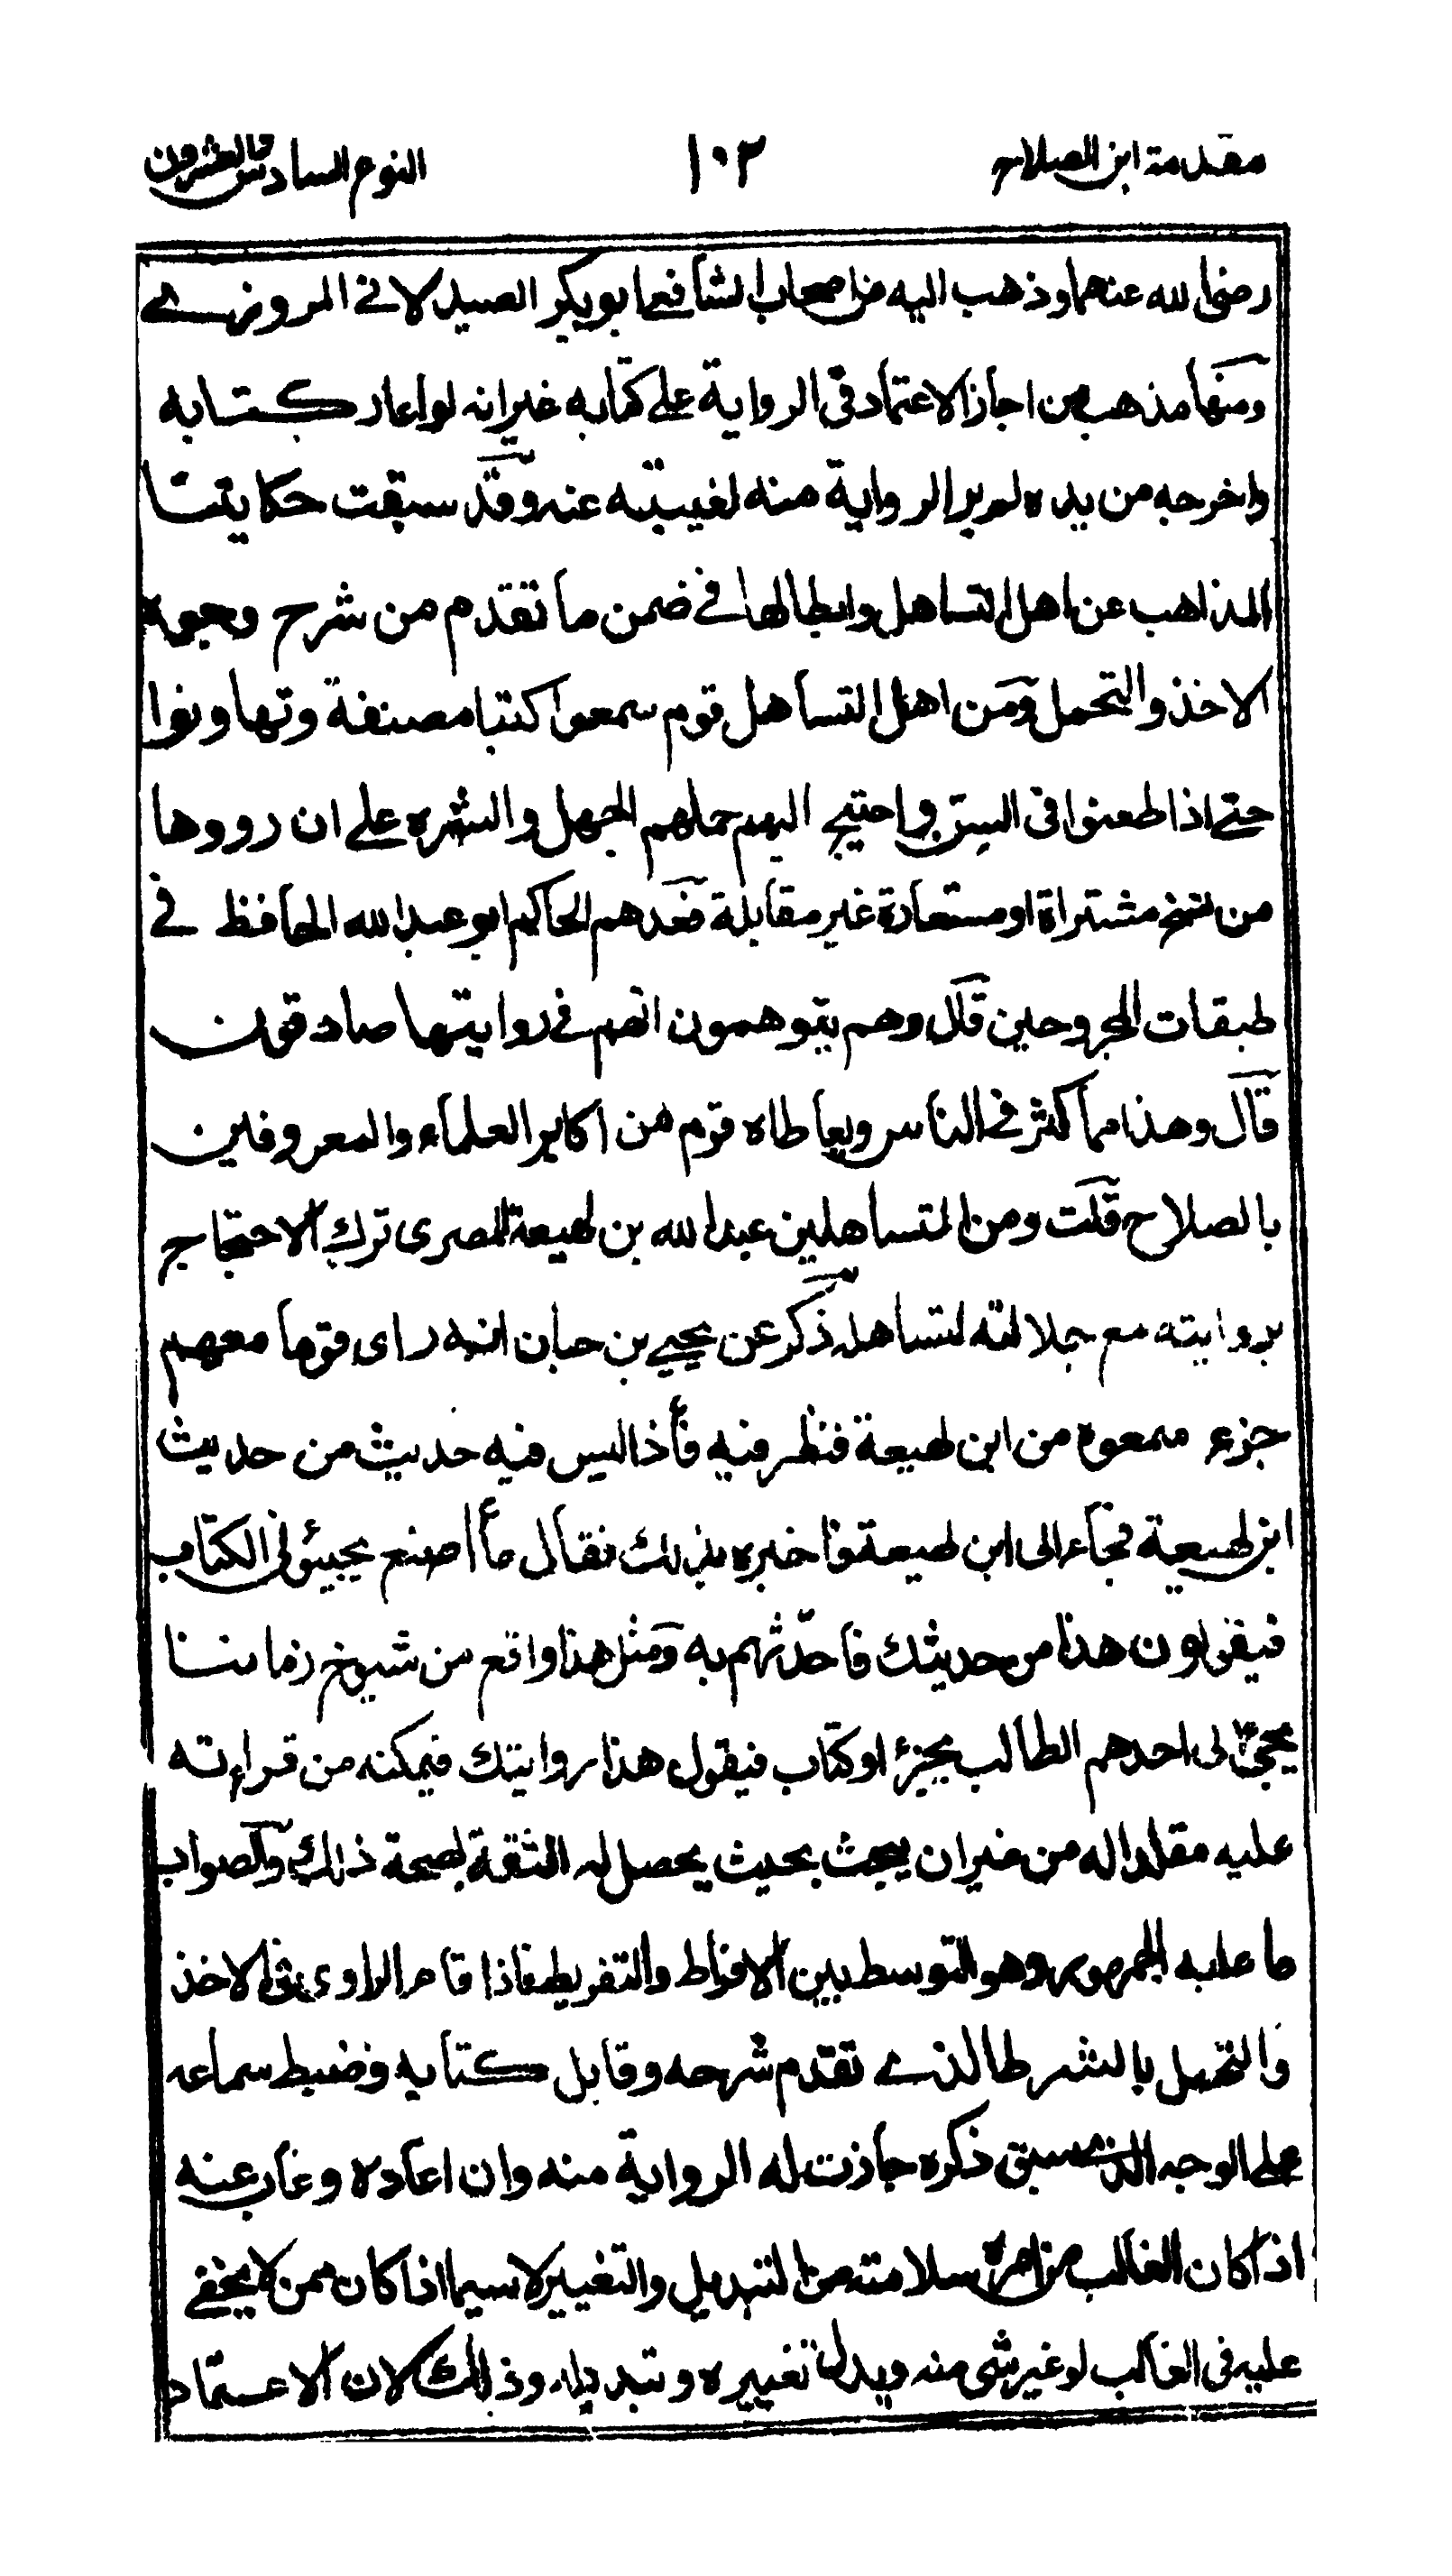 مقدمة ابن الصلاح ١٠٢ النوع السادس والعشرون
رضى الله عنهما وذهب اليه من اصحاب الشافعى ابو بكر الصيدلانى المروزى
ومنها مذهب من اجاز الاعتماد فى الرواية على كتابه غير انه لو اعار كتابه
واخرجه من يده لم ير الرواية منه لغيبته عنه وقد سبقت حكايتنا
المذاهب عن اهل التساهل وابطالها فى ضمن ما تقدم من شرح وجوه
الاخذ والتحمل ومن اهل التساهل قوم سمعوا كتبا مصنفة وتهاونوا
حتى اذا طعنوا فى السن واحتيج اليهم حملهم الجهل والشره على ان رووها
من نسخ مشتراة او مستعارة غير مقابلة فعدهم الحاكم ابو عبد الله الحافظ فى
طبقات المجروحين قال وهم يتوهمون انهم فى روايتها صادقون
قال وهذا مما كثر فى الناس ويعاطاه قوم من اكابر العلماء والمعروفين
بالصلاح قلت ومن المتساهلين عبد الله بن لهيعة المصرى ترك الاحتجاج
بروايته مع جلالته لتساهله ذكر عن يحيى بن حبان انه راى قوما معهم
جزء سمعوه من ابن لهيعة فنظر فيه فاذا ليس فيه حديث من حديث
ابن لهيعة فجاء الى ابن لهيعة فاخبره بذلك فقال ما أصنع يجيئونى الكتاب
فيقولون هذا من حديثك فاحدثهم به ومثل هذا واقع من شيوخ زماننا
يجئ الى احدهم الطالب بجزء او كتاب فيقول هذا روايتك فيمكنه من قراءته
عليه مقلدا له من غير ان يبحث بحيث يحصل له الثقة بصحة ذلك والصواب
ما عليه الجمهور وهو التوسط بين الافراط والتفريط فاذا قام الراوى فى الاخذ
والتحمل بالشرط الذى تقدم شرحه وقابل كتابه وضبط سماعه
على الوجه الذى سبق ذكره جازت له الرواية منه وان اعاده وغاب عنه
اذا كان الغالب من امره سلامته من التبديل والتغيير لا سيما اذا كان ممن لا يخفى
عليه فى الغالب لو غير شى منه وبدل تغييره وتبديله وذلك لان الاعتماد